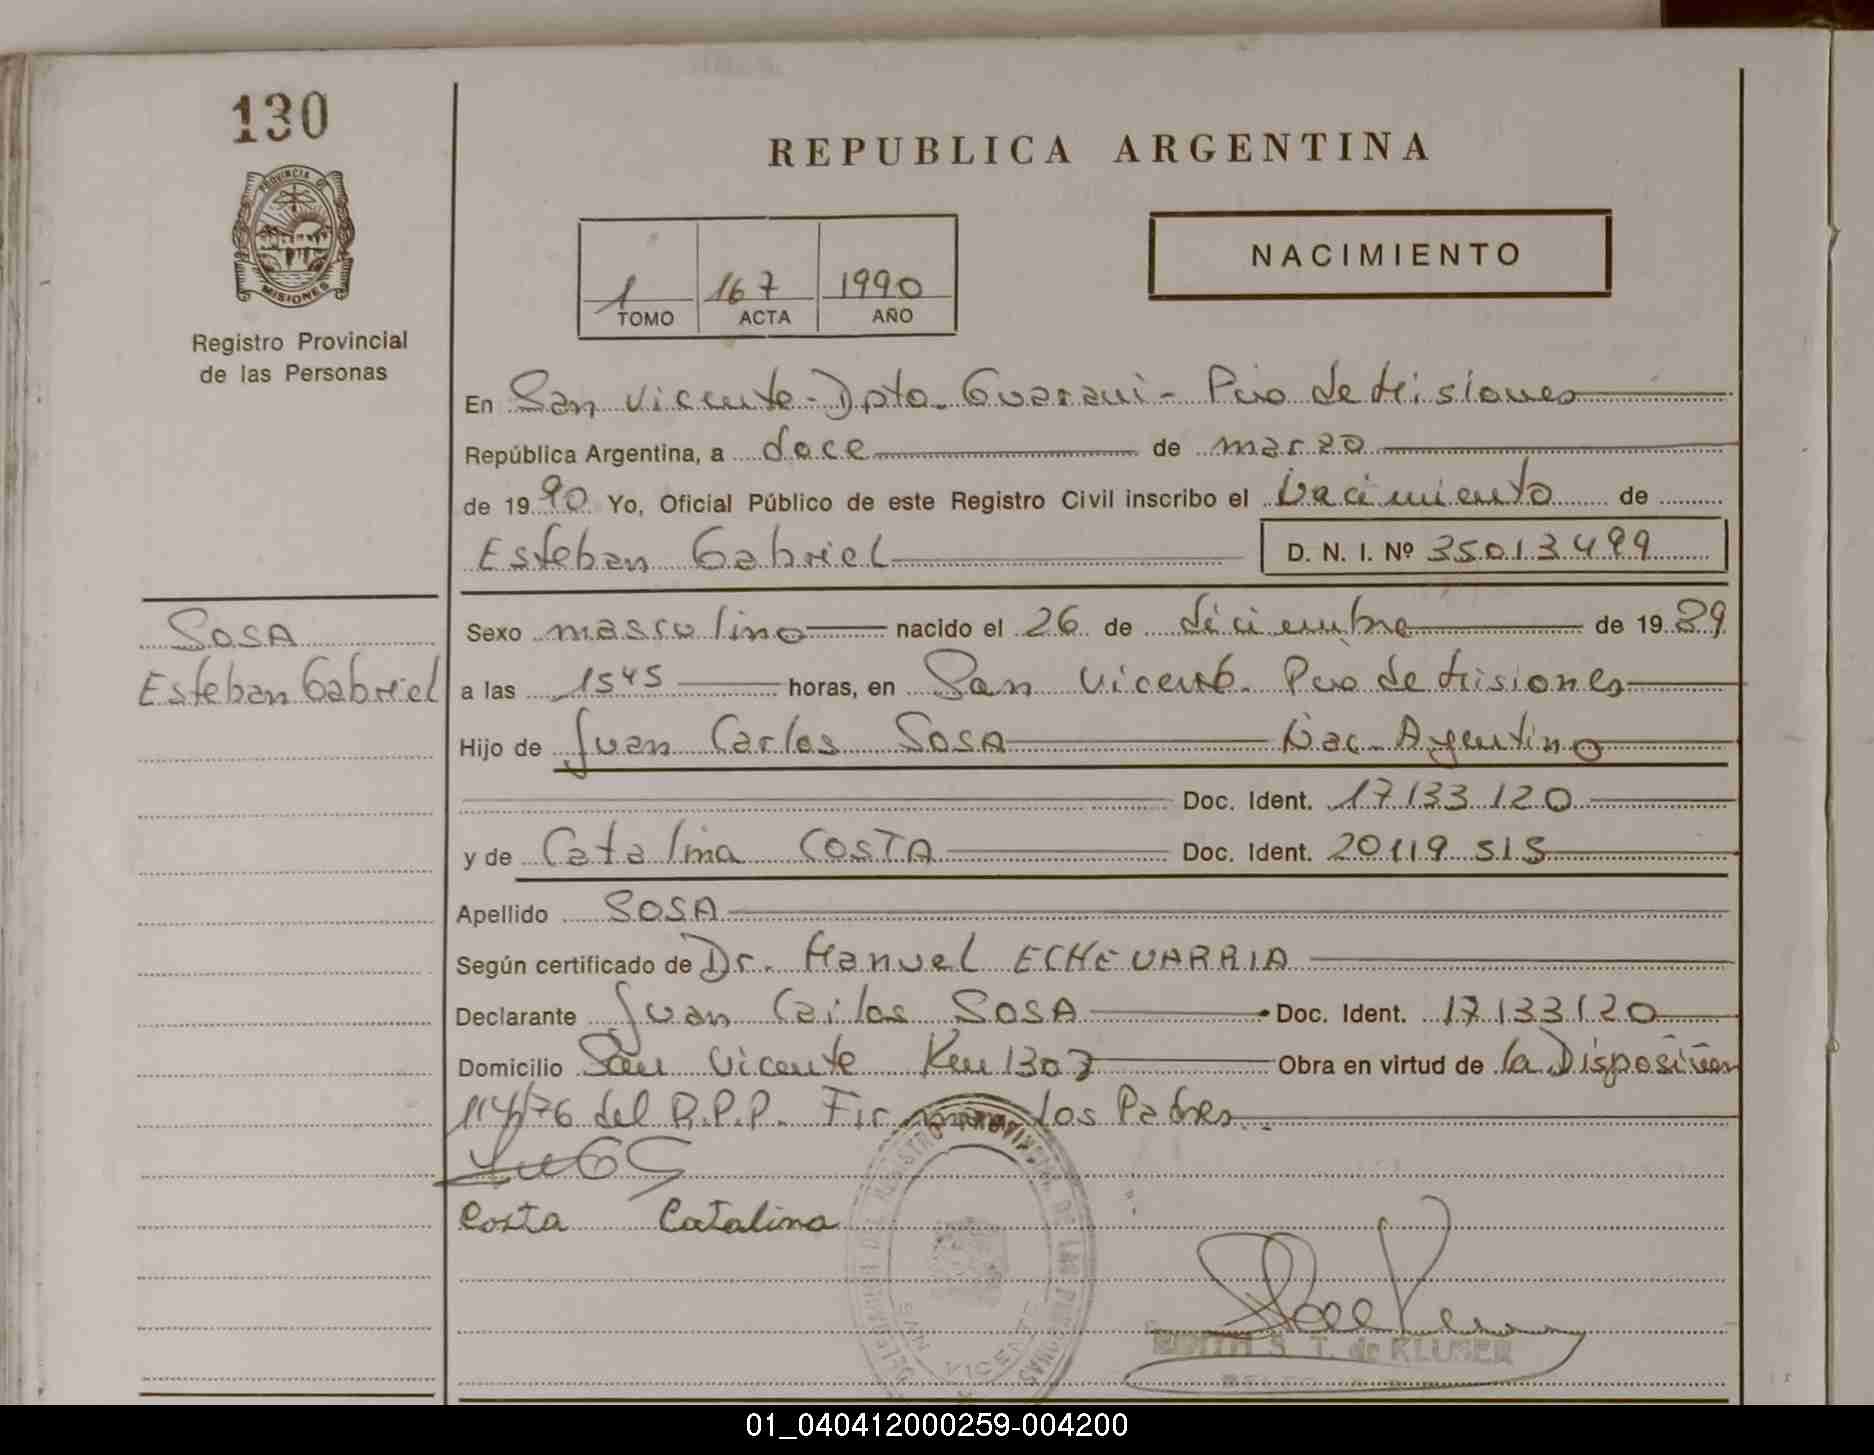 130
PROVINCIA DE
MISIONES
Registro Provincial
de las Personas
REPUBLICA ARGENTINA
NACIMIENTO
1 167 1990
TOMO ACTA AÑO
En San Vicente - Dpto. Guarani - Pcio de Misiones
República Argentina, a doce de marzo
de 1990 Yo, Oficial Público de este Registro Civil inscribo el Nacimiento de
Esteban Gabriel D. N. I. Nº 35013499
SOSA
Esteban Gabriel
Sexo masculino nacido el 26 de diciembre de 1989
a las 1545 horas, en San Vicente. Pcio de Misiones
Hijo de Juan Carlos SOSA Nac. Argentino
Doc. Ident. 17133120
y de Catalina COSTA Doc. Ident. 20119515
Apellido SOSA
Según certificado de Dr. Manuel ECHEVARRIA
Declarante Juan Carlos SOSA Doc. Ident. 17133120
Domicilio San Vicente Km 1307 Obra en virtud de la Disposición
114/76 del R.P.P. Firman los Padres..
Costa Catalina
DELEGACION DEL REGISTRO PROVINCIAL DE LAS PERSONAS
SAN VICENTE
EDITH S. T. de KLUSER
01_040412000259-004200